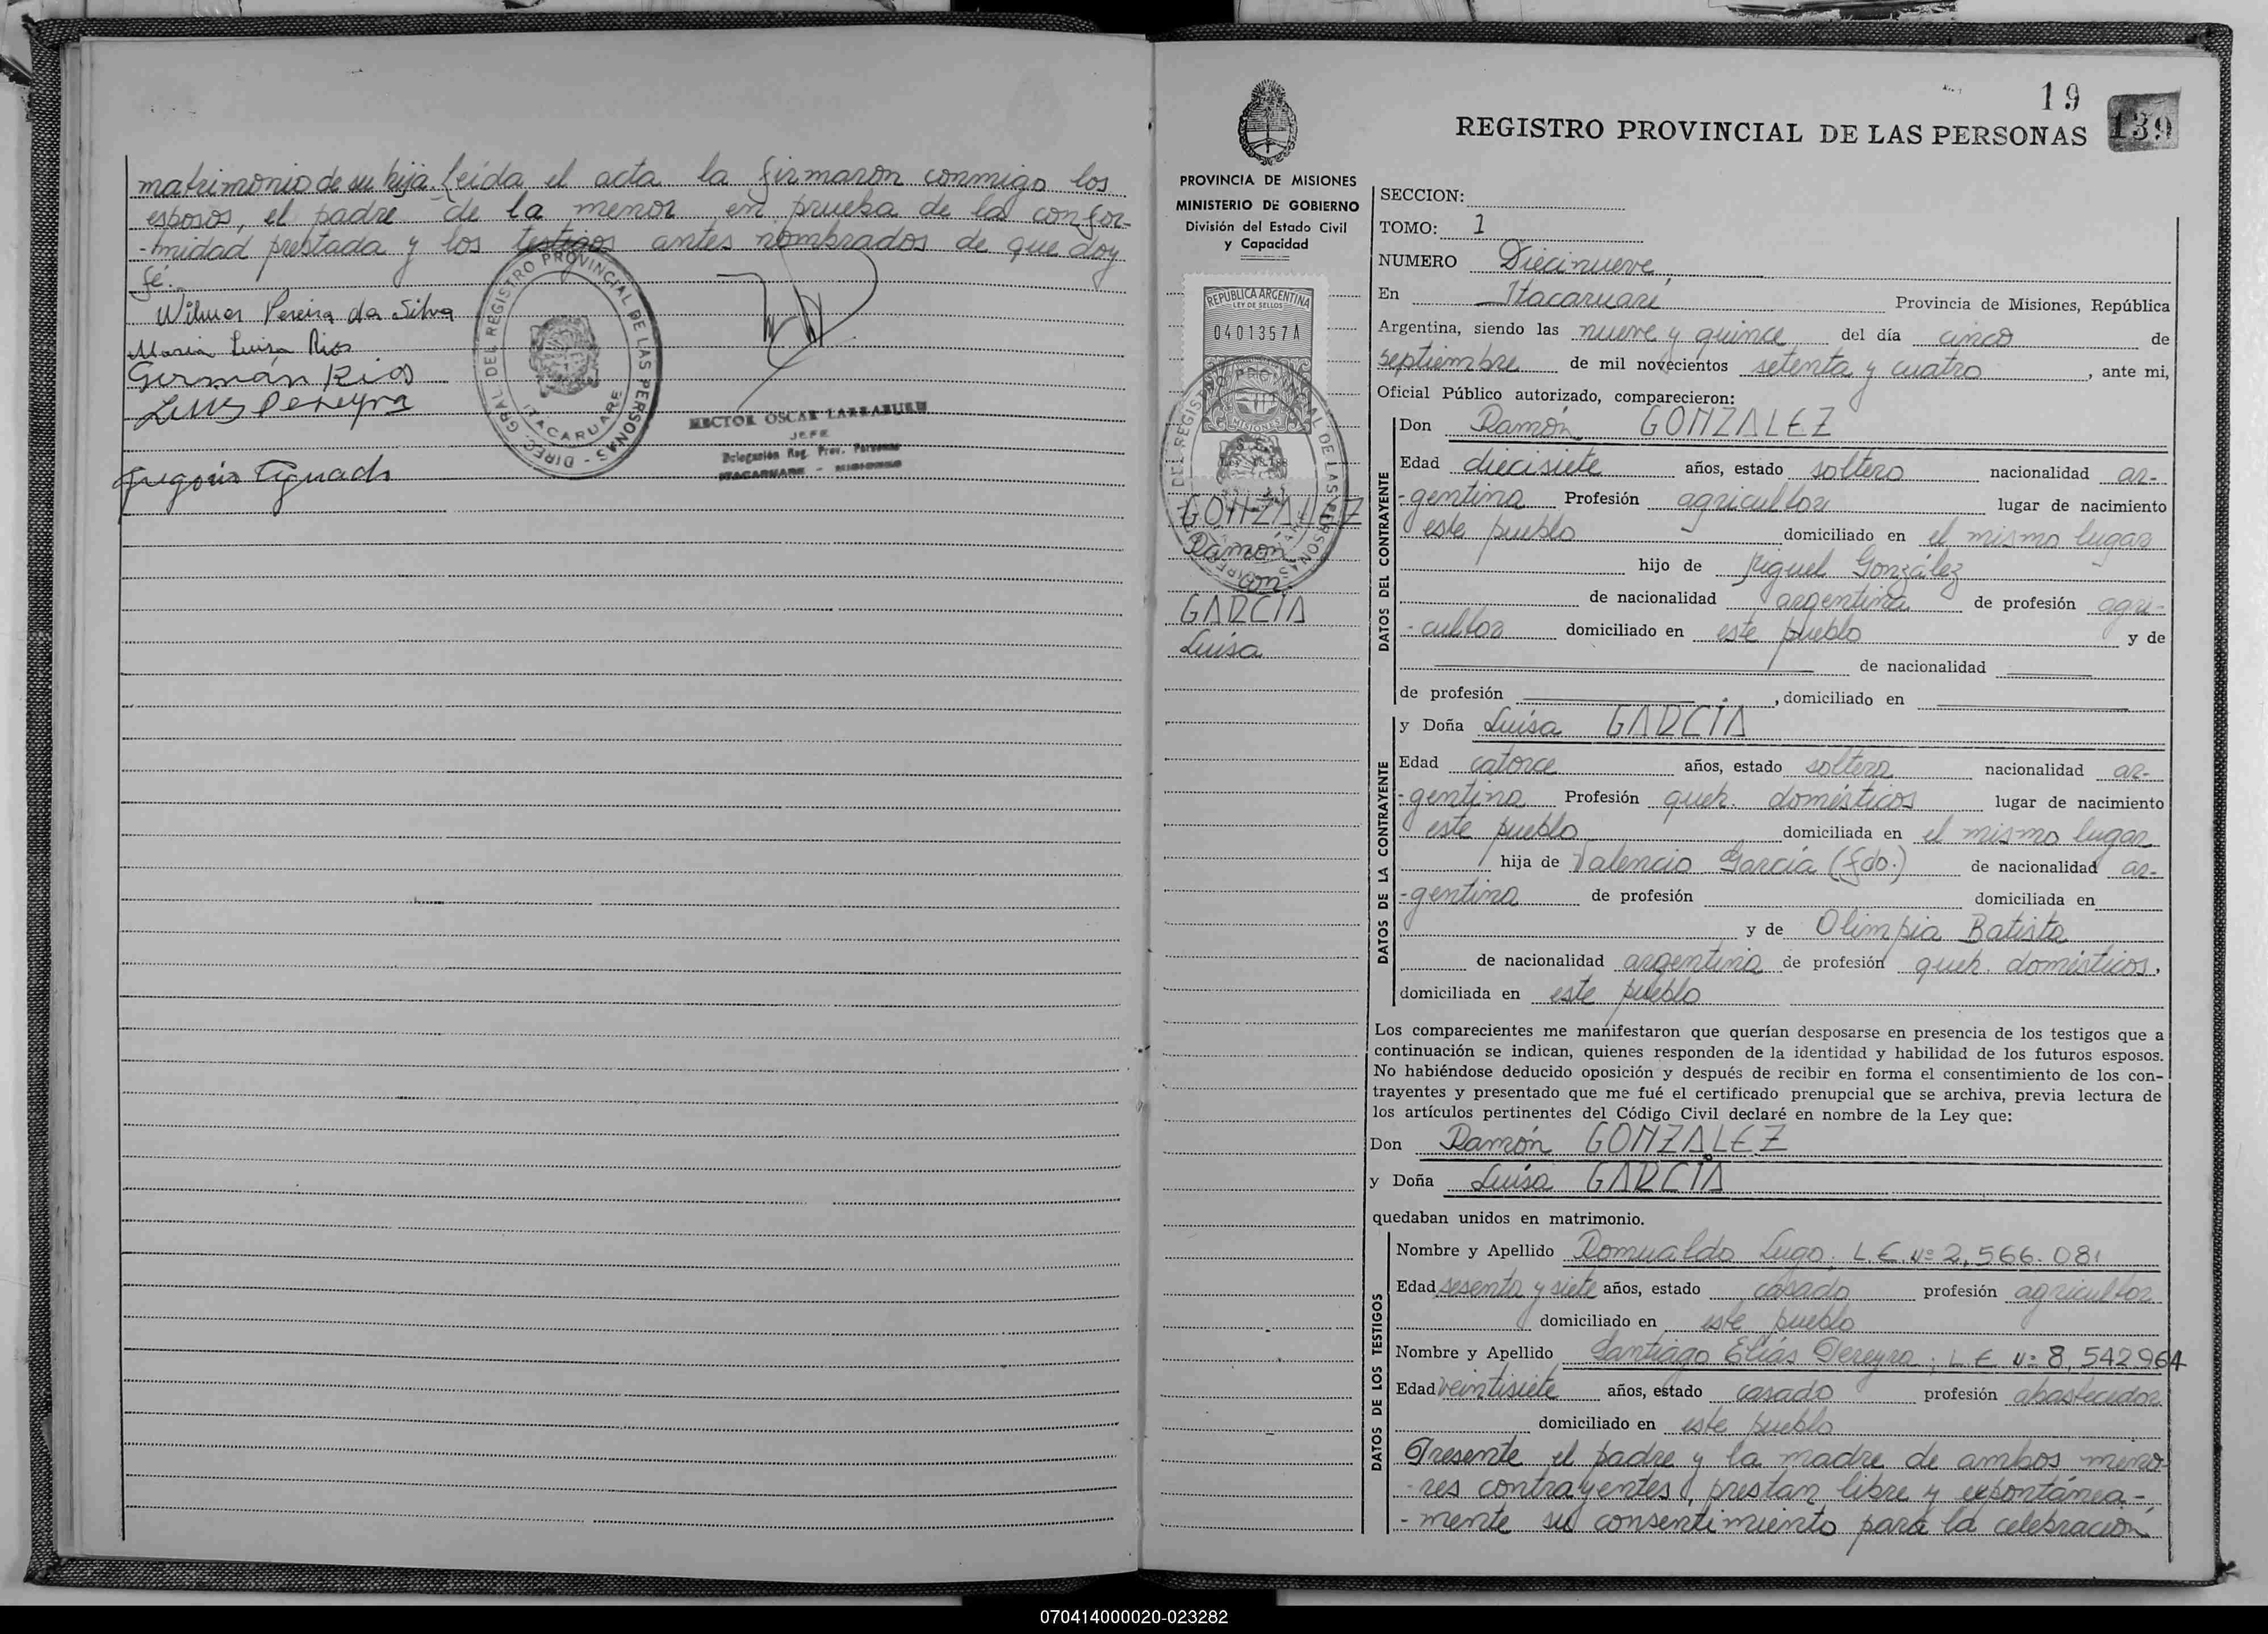 matrimonio de su hija. Leída el acta la firmaron conmigo los
esposos, el padre de la menor en prueba de la confor-
-midad prestada y los testigos antes nombrados de que doy
fé.
Wilmar Pereira da Silva
Maria Luisa Rios
Germán Rios
Luis Pereyra
DIREC. GRAL DEL REGISTRO PROVINCIAL DE LAS PERSONAS -
ITACARUARE
HECTOR OSCAR LARRABURU
JEFE
Delegación Reg. Prov. Personas
ITACARUARE - MISIONES
PROVINCIA DE MISIONES
MINISTERIO DE GOBIERNO
División del Estado Civil
y Capacidad
REPUBLICA ARGENTINA
LEY DE SELLOS
0401357A
MISIONES
GONZALEZ
Ramón
con
GARCIA
Luisa
19
139
REGISTRO PROVINCIAL DE LAS PERSONAS
SECCION:
TOMO: 1
NUMERO Diecinueve,
En Itacaruaré Provincia de Misiones, República
Argentina, siendo las nueve y quince del día cinco de
septiembre de mil novecientos setenta y cuatro, ante mi,
Oficial Público autorizado, comparecieron:
DATOS DEL CONTRAYENTE
Don Ramón GONZALEZ
Edad diecisiete años, estado soltero nacionalidad ar-
-gentina Profesión agricultor lugar de nacimiento
este pueblo domiciliado en el mismo lugar
hijo de Miguel González
de nacionalidad argentina de profesión agri-
-cultor domiciliado en este pueblo y de
de nacionalidad
de profesión , domiciliado en
DATOS DE LA CONTRAYENTE
y Doña Luisa GARCÍA
Edad catorce años, estado soltera nacionalidad ar-
-gentina Profesión queh. domésticos lugar de nacimiento
este pueblo domiciliada en el mismo lugar
hija de Valencio García (fdo.) de nacionalidad ar-
-gentina de profesión domiciliada en
y de Olimpia Batista
de nacionalidad argentina de profesión queh. domésticos,
domiciliada en este pueblo
Los comparecientes me manifestaron que querían desposarse en presencia de los testigos que a
continuación se indican, quienes responden de la identidad y habilidad de los futuros esposos.
No habiéndose deducido oposición y después de recibir en forma el consentimiento de los con-
trayentes y presentado que me fué el certificado prenupcial que se archiva, previa lectura de
los artículos pertinentes del Código Civil declaré en nombre de la Ley que:
Don Ramón GONZALEZ
y Doña Luisa GARCÍA
quedaban unidos en matrimonio.
DATOS DE LOS TESTIGOS
Nombre y Apellido Romualdo Lugo; L.E. Nº 2,566.081
Edad sesenta y siete años, estado casado profesión agricultor
domiciliado en este pueblo
Nombre y Apellido Santiago Elías Pereyra; L E Nº 8,542964
Edad veintisiete años, estado casado profesión abastecedor
domiciliado en este pueblo
Presente el padre y la madre de ambos meno-
-res contrayentes, prestan libre y expontánea-
-mente su consentimiento para la celebración
070414000020-023282